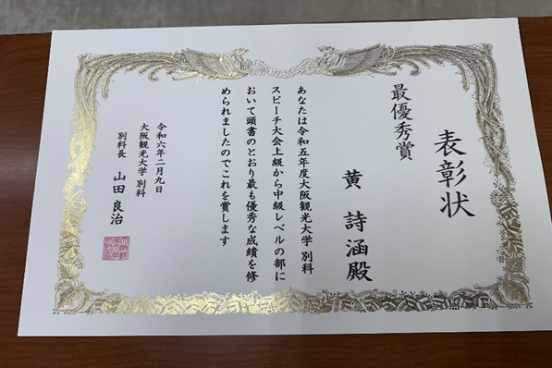 表彰状
最優秀賞
黄 詩涵殿
あなたは令和五年度大阪観光大学 別科
スピーチ大会上級から中級レベルの部に
おいて頭書のとおり最も優秀な成績を修
められましたのでこれを賞します
令和六年二月九日
大阪観光大学 別科
別科長 山田 良治